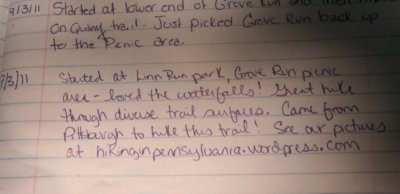 9/3/11 Started at lower end of Grove Run and then hike
on Quarry trail. Just picked Grove Run back up
to the Picnic area.
9/3/11 Started at Linn Run park, Grove Run picnic
area - loved the waterfalls! Great hike
through diverse trail surfaces. Came from
Pittsburgh to hike this trail! See our pictures
at hikinginpennsylvania.wordpress.com